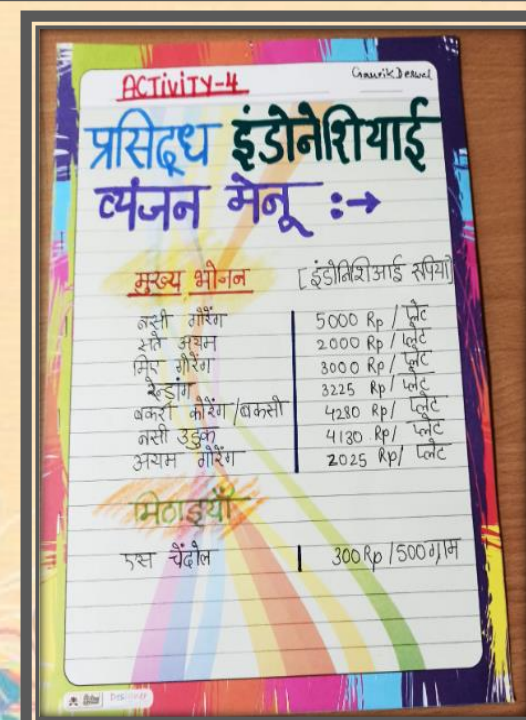 ACTiViTY-4
Gaurik Deswal
प्रसिद्ध इंडोनेशियाई
व्यंजन मेनू :→
मुख्य भोजन [इंडोनिशिआई रुपिया]
नसी गौरेंग 5000 Rp / प्लेट
सते अयम 2000 Rp / प्लेट
मिए गौरेंग 3000 Rp / प्लेट
रेन्डांग 3225 Rp / प्लेट
बकसी कौरेंग/बकसी 4280 Rp / प्लेट
नसी उडुक 4130 Rp / प्लेट
अयम गौरेंग 2025 Rp / प्लेट
मिठाइयाँ
एस चेंदोल 300 Rp / 500 ग्राम